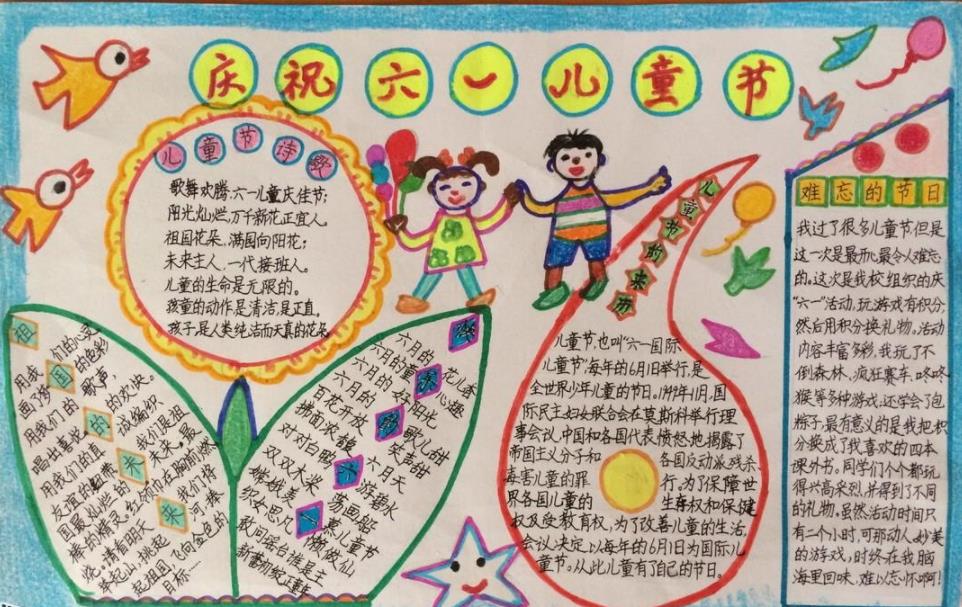 庆祝六一儿童节
儿童节诗歌
歌舞欢腾,六一儿童庆佳节;
阳光灿烂,万千新花正宜人。
祖国花朵,满园向阳花;
未来主人,一代接班人。
儿童的生命是无限的。
孩童的动作是清洁,是正直。
孩子是人类纯洁而天真的花朵
祖国的未来
用我们的心灵
画了的色彩
用我们的歌声
唱出喜悦的欢快。
用我们的真诚编织
友谊的纽带
我们是祖
国最灿烂的未来。最
棒的精灵,红领巾在胸前燃
烧。请看明天
我们将
举起山,挑起河,捧
起祖国,飞向金色的
目标……
六月的花儿香
六月的童心趣
六月的好阳光
百花开放歌儿甜
拂面浓馥笑声甜
对对白鸥六月天
双双木桨游碧水
织女思凡
儿童节
儿童节的来历
儿童节,也叫“六一国际
儿童节”,每年的6月1日举行,是
全世界少年儿童的节日。1949年11月,国
际民主妇女联合会在莫斯科举行理
事会议,中国和各国代表愤怒地揭露了
帝国主义分子和各国反动派残杀、
毒害儿童的罪行。为了保障世
界各国儿童的生存权和保健
权及受教育权,为了改善儿童的生活,
会议决定以每年的6月1日为国际儿
童节。从此儿童有了自己的节日。
难忘的节日
我过了很多儿童节但是
这一次是最最令人难忘
的。这次是我校组织的庆
“六一”活动,玩游戏有积分,
然后用积分换礼物。活动
内容丰富多彩,我玩了不
倒森林、疯狂赛车、咚咚
猴等多种游戏,还学会了包
粽子,最有意义的是我把积
分换成了我喜欢的四本
课外书。同学们个个都玩
得兴高采烈,并得到了不同
的礼物。虽然活动时间只
有二个小时,可那动人、妙美
的游戏,时终在我脑
海里回味,难以忘怀啊!